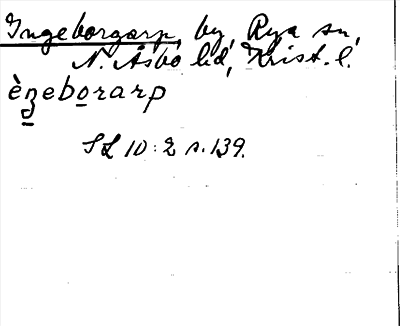 Ingeborgarp, by, Rya sn,
N. Åsbo hd, Krist. l.
èŋeborarp
SL 10:2 s. 139.